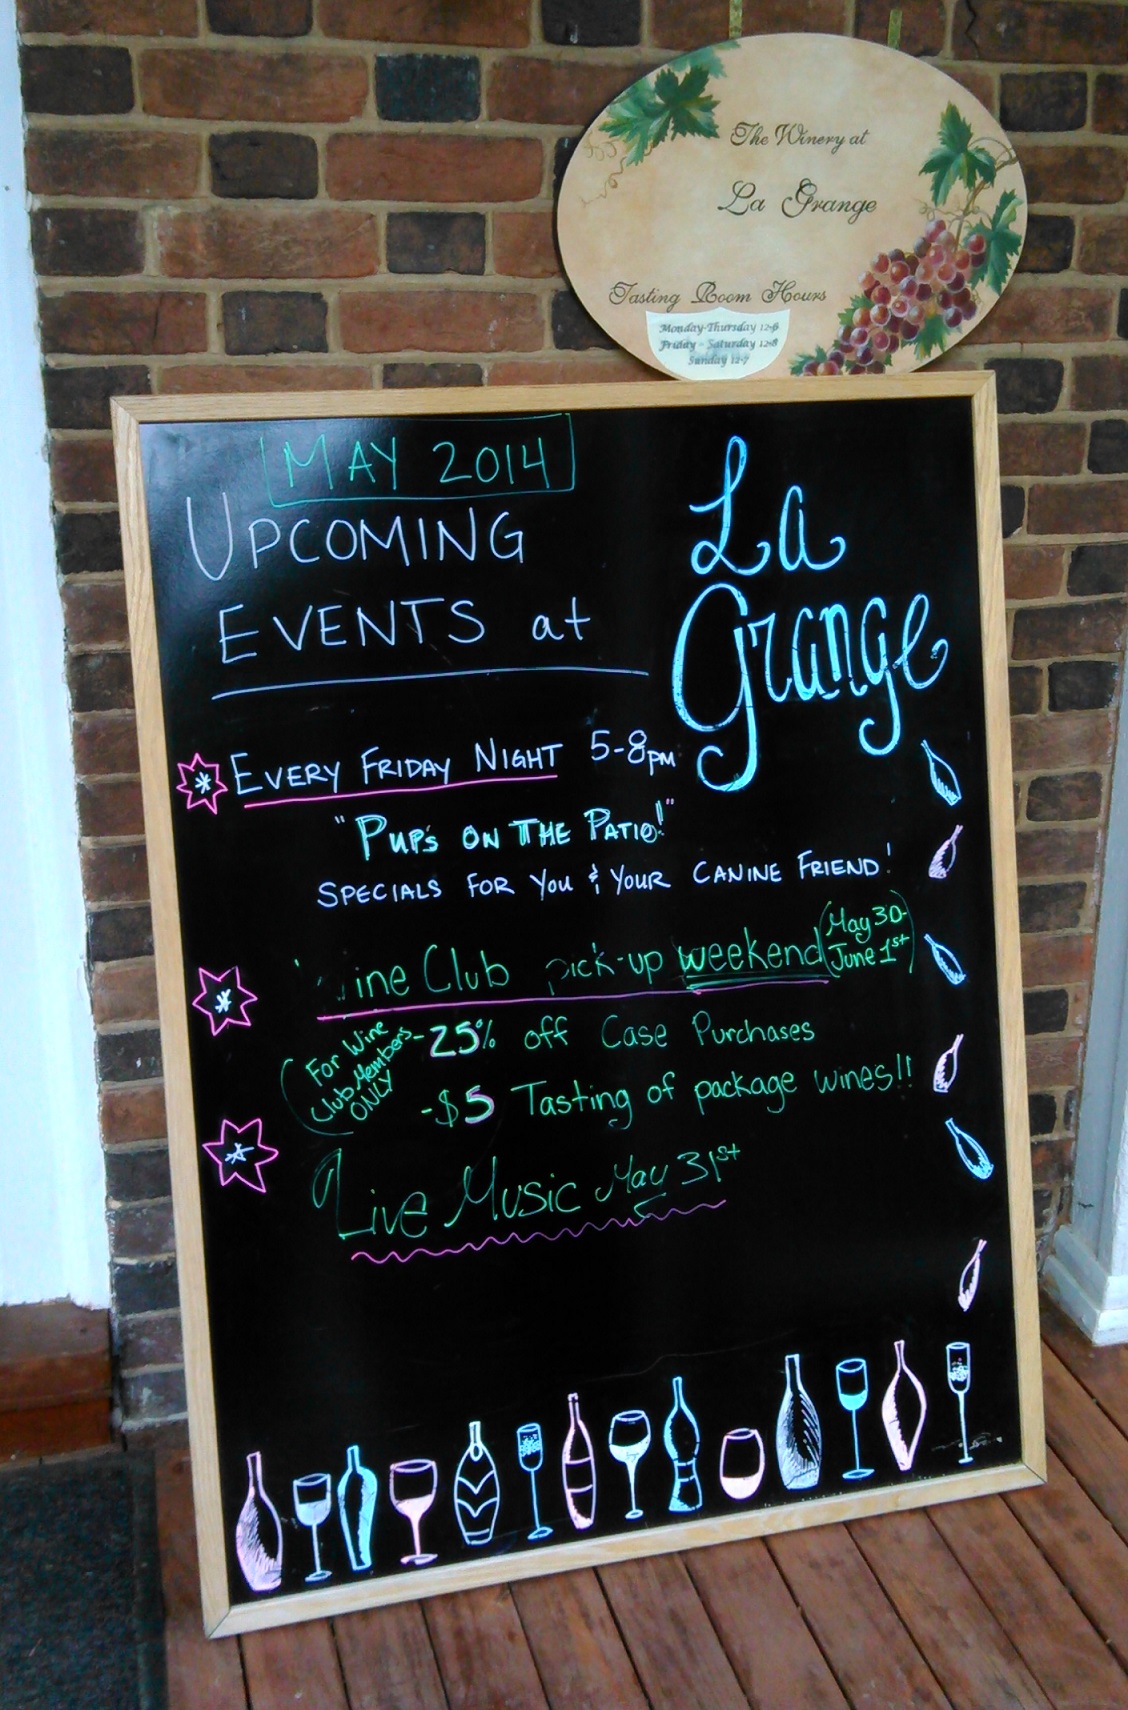 The Winery at
La Grange
Tasting Room Hours
Monday-Thursday 12-6
Friday - Saturday 12-8
Sunday 12-7
MAY 2014
UPCOMING
EVENTS at
La
Grange
EVERY FRIDAY NIGHT 5-8PM
"PUP'S ON THE PATIO!"
SPECIALS FOR YOU & YOUR CANINE FRIEND!
ine Club pick-up weekend (May 30-
June 1st)
(For Wine
Club Members
ONLY
-25% off Case Purchases
-$5 Tasting of package wines!!
Live Music May 31st